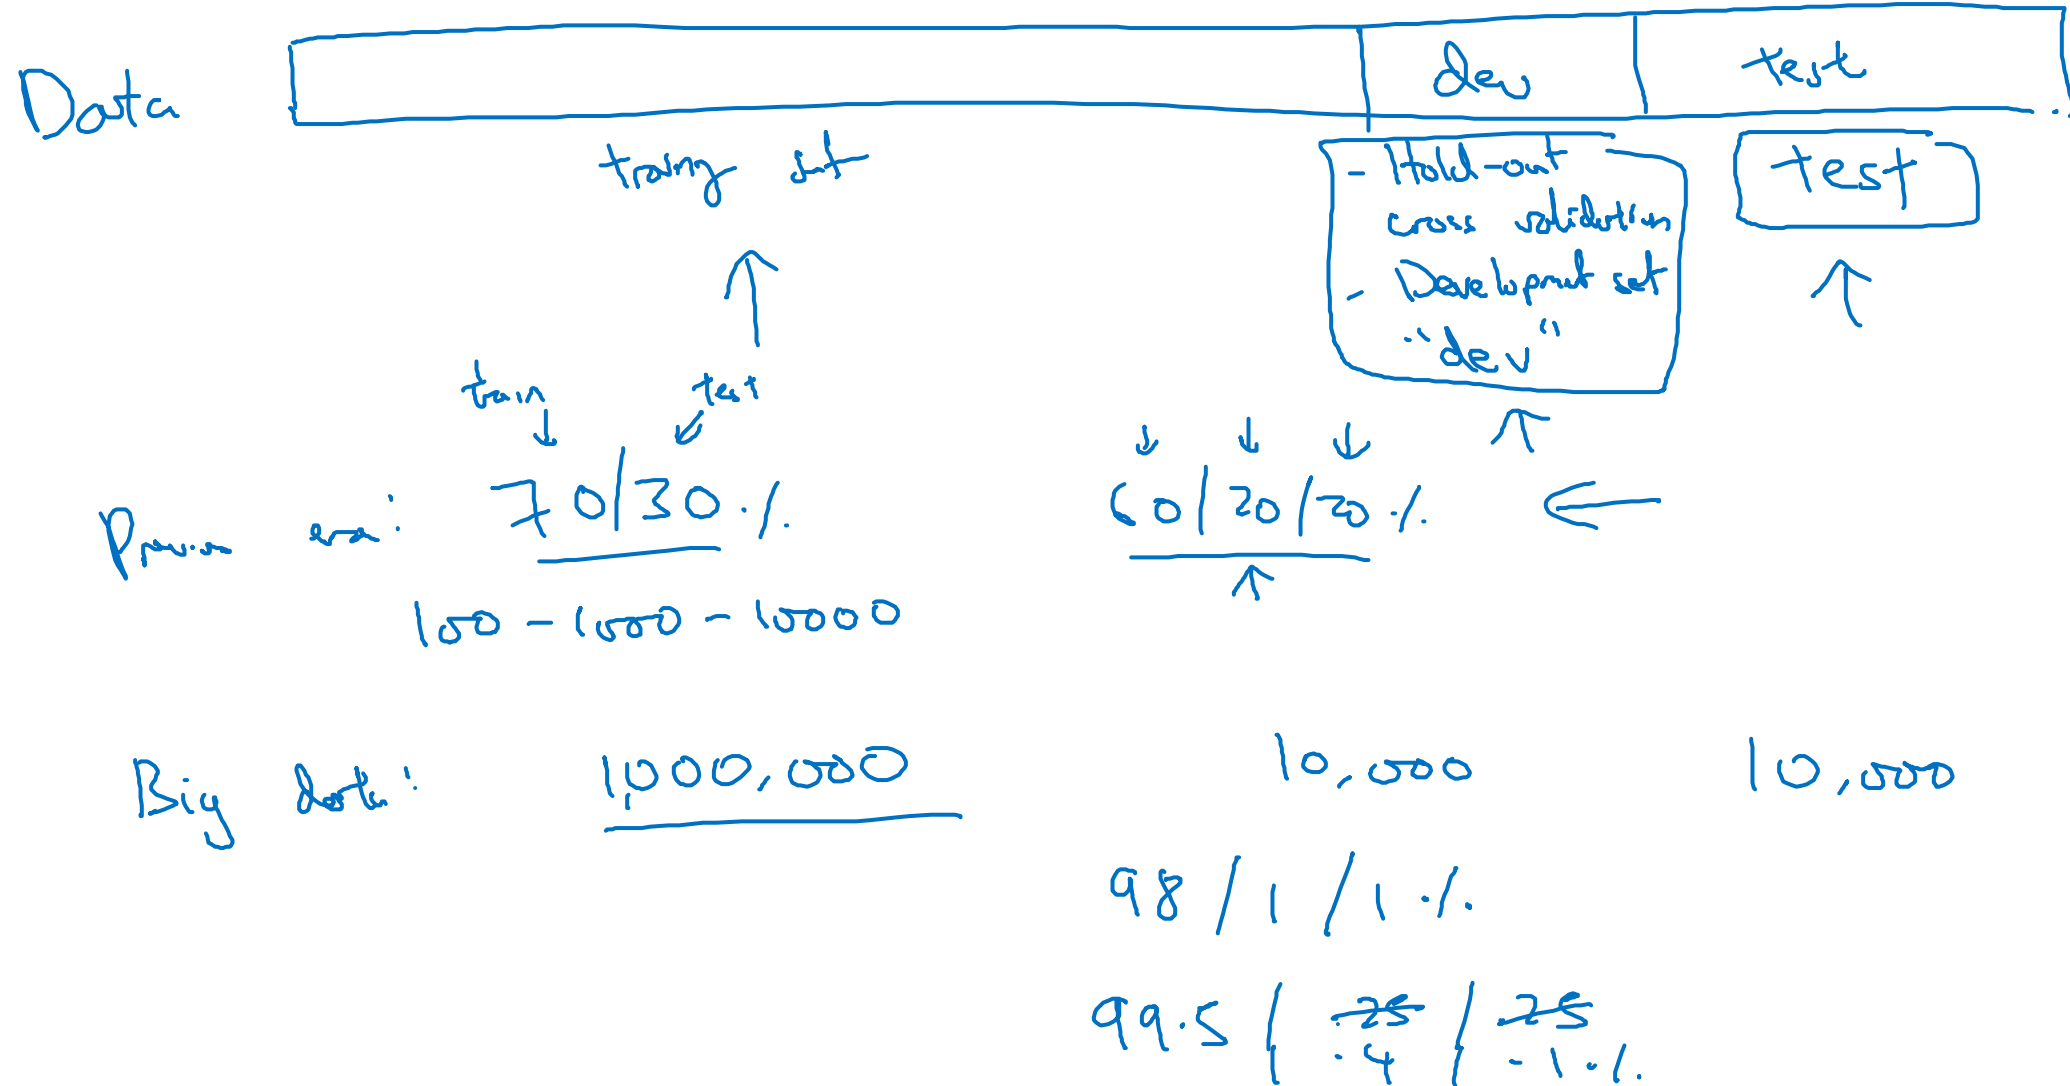 Data dev test
training set
- Hold-out
cross validation
- Development set
"dev"
test
train test
Previous era: 70/30 % 60/20/20 %
100 - 1000 - 10000
Big data: 1,000,000 10,000 10,000
98 / 1 / 1 %
99.5 / .25 / .25
/ .4 / .1 %